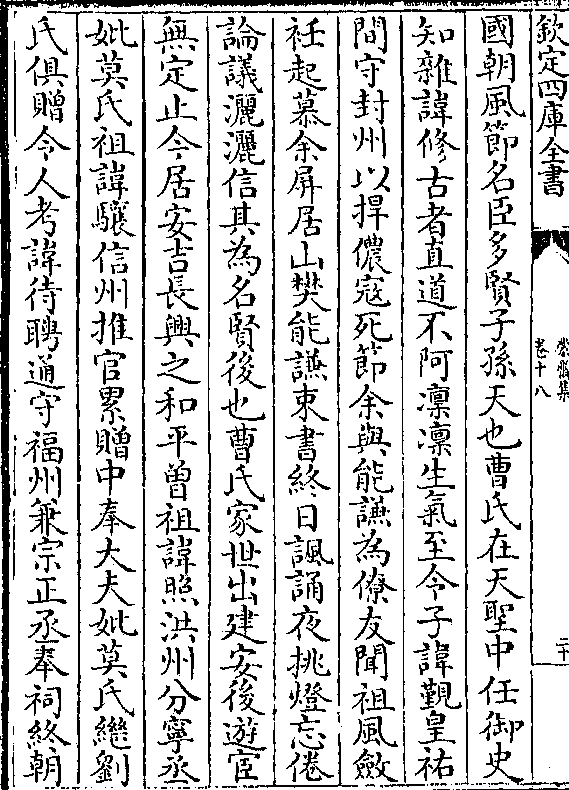 欽定四庫全書
卷十八
二十
國朝風節名臣多賢子孫天也曹氏在天聖中任御史
知雜諱修古者直道不阿凜凜生氣至今子諱覲皇祐
間守封州以捍儂寇死節余與能謙為僚友聞祖風斂
衽起慕余屏居山樊能謙束書終日諷誦夜挑燈忘倦
論議灑灑信其為名賢後也曹氏家世出建安後遊宦
無定止今居安吉長興之和平曾祖諱照洪州分寧丞
妣莫氏祖諱驤信州推官累贈中奉大夫妣莫氏繼劉
氏俱贈令人考諱待聘通守福州兼宗正丞奉祠終朝